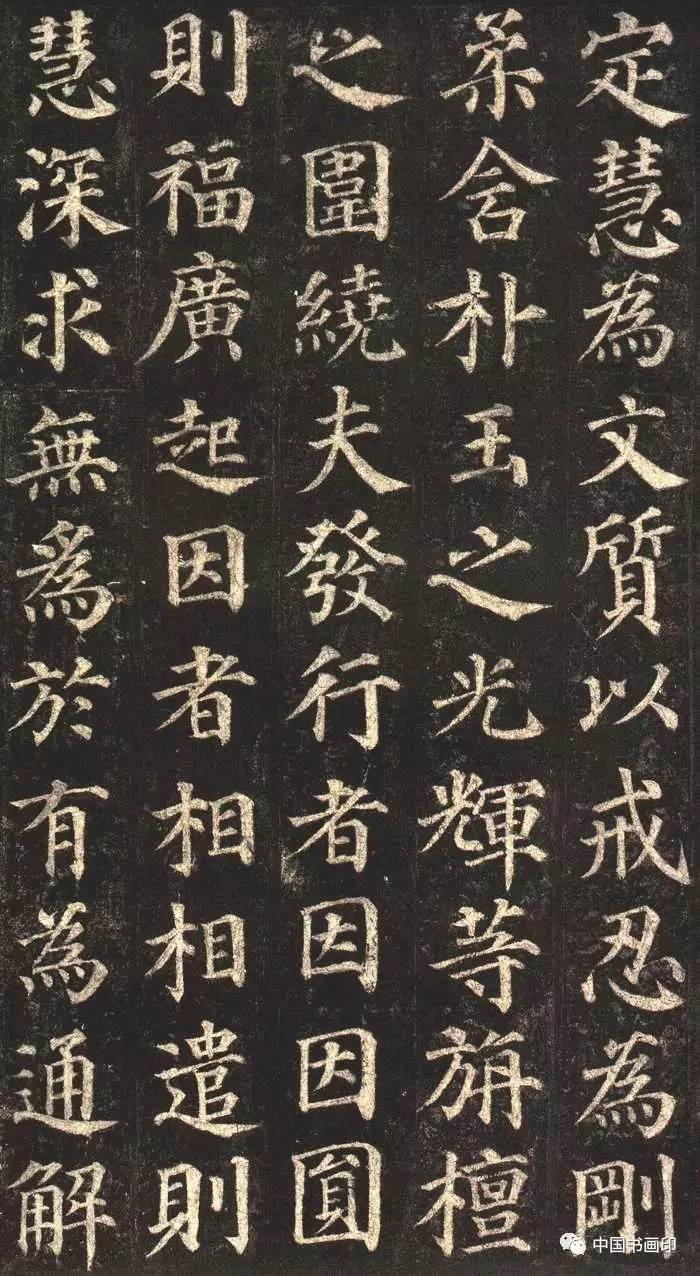 定慧為文質以戒忍為剛
柔含朴玉之光輝等旃檀
之圍繞夫發行者因因圎
則福廣起因者相相遣則
慧深求無為於有為通解
中国书画印